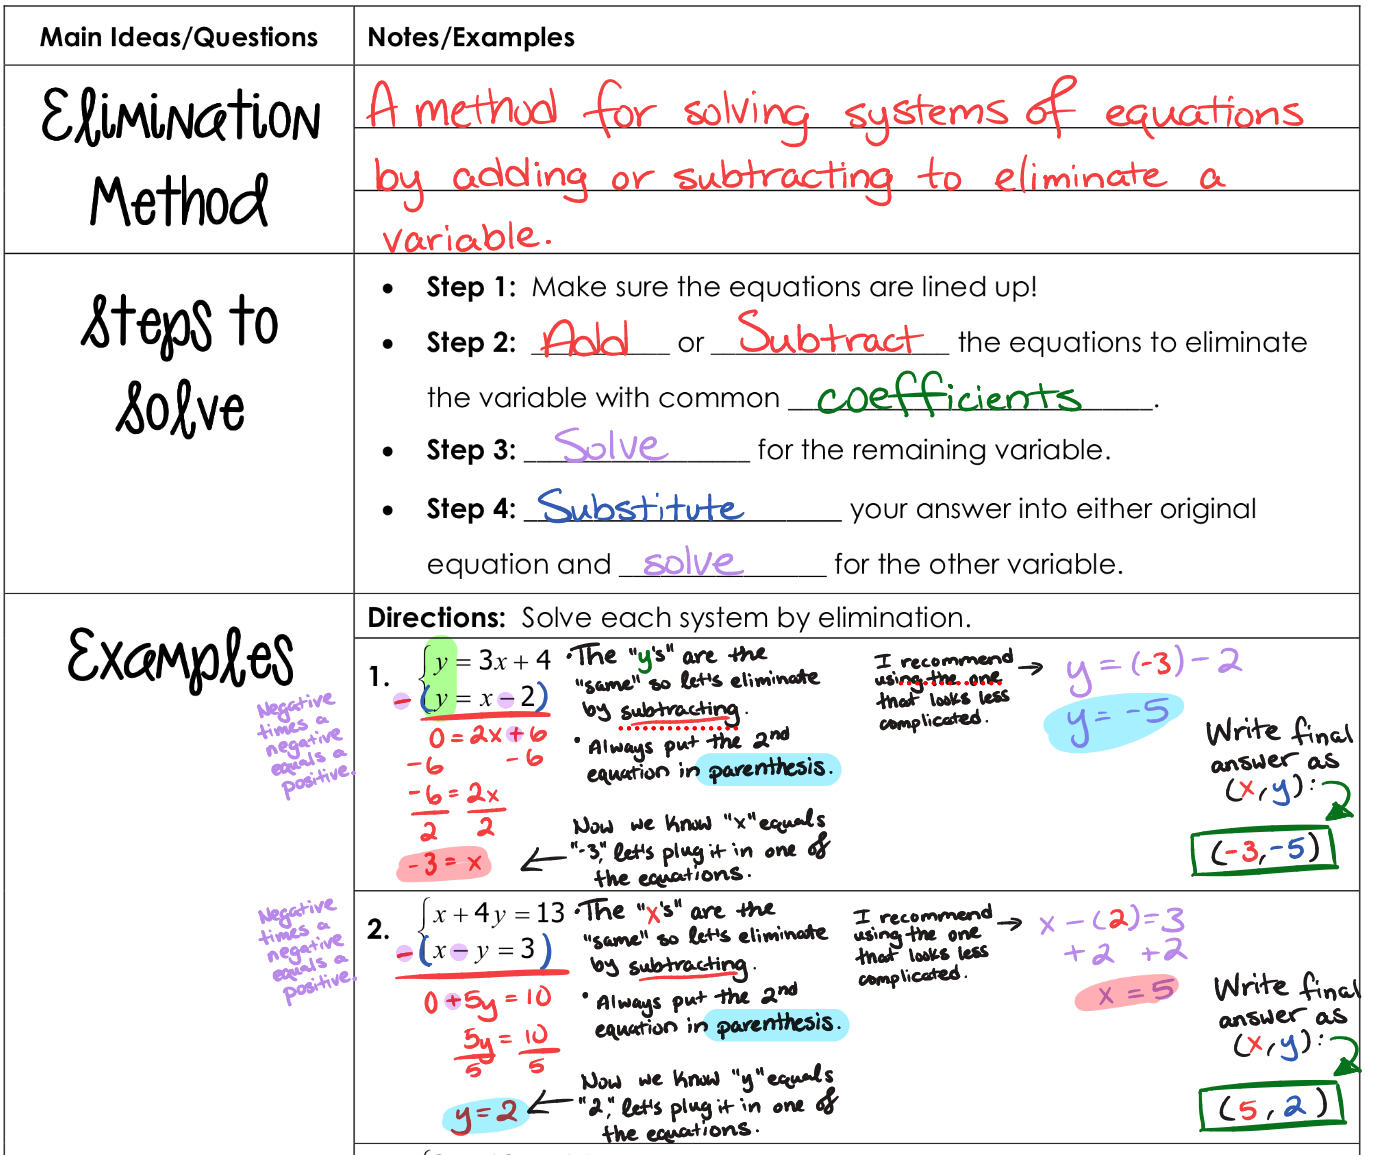 Main Ideas/Questions
Notes/Examples
Elimination
Method
A method for solving systems of equations
by adding or subtracting to eliminate a
variable.
Steps to
Solve
• Step 1: Make sure the equations are lined up!
• Step 2: Add or Subtract the equations to eliminate
the variable with common coefficients.
• Step 3: Solve for the remaining variable.
• Step 4: Substitute your answer into either original
equation and solve for the other variable.
Examples
Directions: Solve each system by elimination.
1.
y = 3x + 4
- (y = x - 2)
0 = 2x + 6
-6 -6
-6 = 2x
2 2
-3 = x
Negative
times a
negative
equals a
positive.
• The "y's" are the
"same" so let's eliminate
by subtracting.
• Always put the 2nd
equation in parenthesis.
Now we know "x" equals
"-3," let's plug it in one of
the equations.
I recommend
using the one
that looks less
complicated.
y = (-3) - 2
y = -5
Write final
answer as
(x, y):
(-3, -5)
2.
x + 4y = 13
- (x - y = 3)
0 + 5y = 10
5y = 10
5 5
y = 2
Negative
times a
negative
equals a
positive.
• The "x's" are the
"same" so let's eliminate
by subtracting.
• Always put the 2nd
equation in parenthesis.
Now we know "y" equals
"2," let's plug it in one of
the equations.
I recommend
using the one
that looks less
complicated.
x - (2) = 3
+2 +2
x = 5
Write final
answer as
(x, y):
(5, 2)